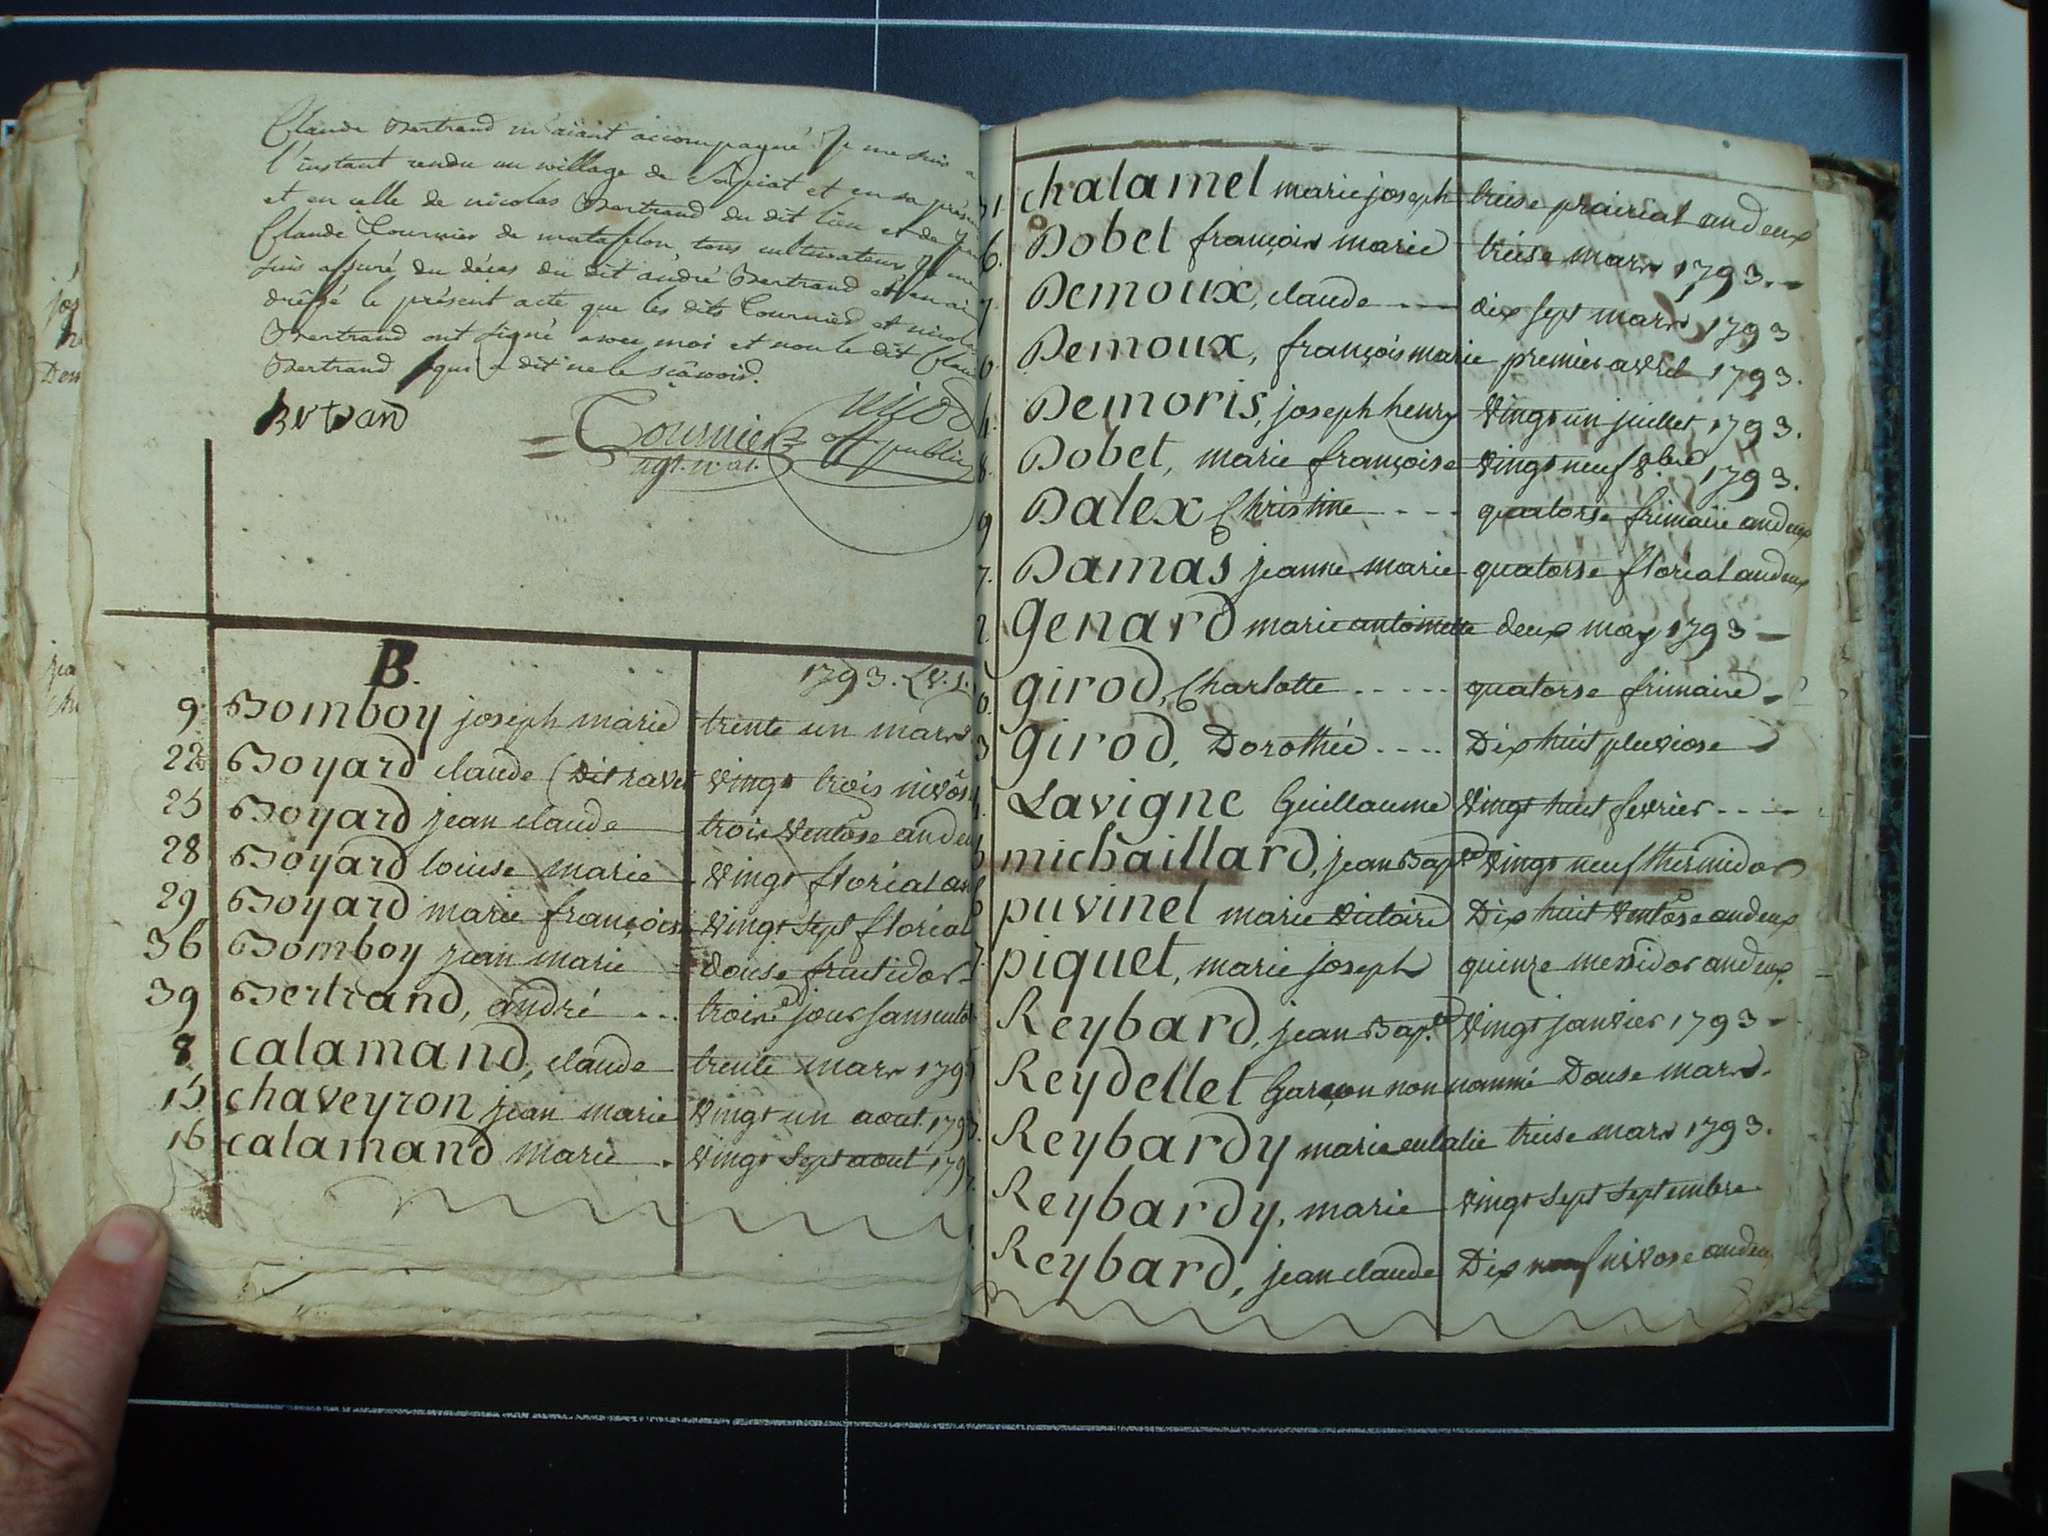 Claude Bertrand m'aiant accompagné Je me suis a
l'instant rendu au willage de Corpiat et en sa présen
et en celle de nicolas Bertrand du dit lieu et de
Claude Tournier de matafelon, tous cultivateurs, Je me
suis assuré du déces du dit andré Bertrand et en ai
dréssé le présent acte que les dits Tournier et nicolas
Bertrand ont signé avec moi et non le dit Claude
Bertrand qui a dit ne le sçavoir.
Bertrand
Tournier
off public
B. 1793. (V.S.
9 Bomboy joseph marie trente un mars
22 Boyard claude (Dit ravet vingt trois nivôs
25 Boyard jean claude trois ventôse an deu
28 Boyard louise marie vingt floréal an
29 Boyard marie françoise vingt sept floréal
36 Bomboy jean marie douse fructidor
39 Bertrand, andré ... troise jour sansculo
8 calamand, claude trente mars 1793
15 chaveyron jean marie vingt un aout 1793
16 calamand marie vingt sept aout 179
31 chalamel marie joseph treise prairial an deux
6. Dobet françois marie treise mars 1793.
7 Demoux, claude dix sept mars 1793
Demoux, françois marie premier avril 1793.
Demoris, joseph henry vingt un juillet 1793.
8. Dobet, marie françoise vingt neuf 8.bre 1793.
9 Dalex Christine quatorse frimaire an deux
7. Damas jeanne marie quatorse floréal an deux
2 Genard marie antoinette deux may 1793
girod, Charlotte quatorse frimaire
3 girod, Dorothée Dix huit pluviose
Lavigne Guillaume vingt huit fevrier
michaillard, jean Bapt vingt neuf thermidor
puvinel marie victoire Dix huit ventôse an deux
7. piquet, marie joseph quinze messidor an deux
Reybard, jean Bapt. vingt janvier 1793
Reydellet Garçon non nommé Douse mars.
Reybardy marie eulalie treise mars 1793.
Reybardy, marie vingt sept septembre
Reybard, jean claude Dix neuf nivose an deu